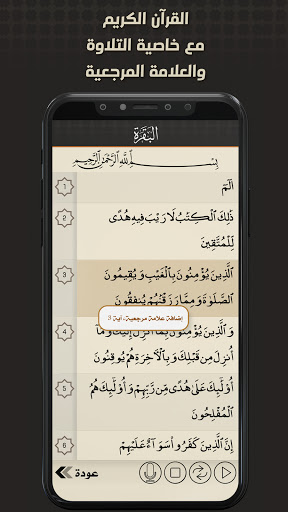 القرآن الكريم
مع خاصية التلاوة
والعلامة المرجعية
البقرة
بِسْمِ ٱللَّهِ ٱلرَّحْمَٰنِ ٱلرَّحِيمِ
1 الٓمٓ
2 ذَٰلِكَ ٱلْكِتَٰبُ لَا رَيْبَ فِيهِ هُدًى
لِّلْمُتَّقِينَ
3 ٱلَّذِينَ يُؤْمِنُونَ بِٱلْغَيْبِ وَيُقِيمُونَ
ٱلصَّلَوٰةَ وَمِمَّا رَزَقْنَٰهُمْ يُنفِقُونَ
إضافة علامة مرجعية، آية 3
4 وَٱلَّذِينَ يُؤْمِنُونَ بِمَآ أُنزِلَ إِلَيْكَ وَمَآ
أُنزِلَ مِن قَبْلِكَ وَبِٱلْءَاخِرَةِ هُمْ يُوقِنُونَ
5 أُو۟لَٰٓئِكَ عَلَىٰ هُدًى مِّن رَّبِّهِمْ وَأُو۟لَٰٓئِكَ هُمُ
ٱلْمُفْلِحُونَ
6 إِنَّ ٱلَّذِينَ كَفَرُوا۟ سَوَآءٌ عَلَيْهِمْ
عودة